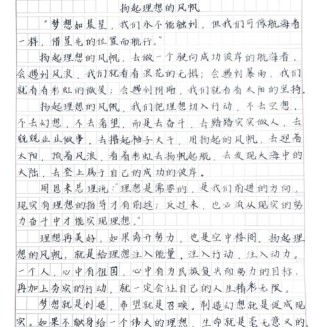 扬起理想的风帆
"梦想如晨星，我们永不能触到，但我们可像航海者
一样，借星光的位置而航行。"
扬起理想的风帆，去做一个驶向成功彼岸的航海者，
会遇到风浪，我们就有看浪花的心情；会遇到暴雨，我们
就有看彩虹的微笑；会遇到阴晴，我们就有看太阳的坚持。
扬起理想的风帆，我们把理想切入行动，不去空想，
不去幻想，不去奢望，而是去奋斗，去踏踏实实做人，去
兢兢业业做事，去撸起袖子大干，用扬起的风帆，去迎着
太阳，顶着风浪，看着彩虹去扬帆起航，去发现大海中的
大陆，去登上属于自己的成功的彼岸。
用周来总理说："理想是需要的，是我们前进的方向，
现实有理想的指导才有前途；反过来，也必须从现实的努
力奋斗中才能实现理想。"
理想再美好，如果离开努力，也是空中楼阁，扬起理
想的风帆，就是给理想注入能量，注入行动，注入动力。
一个人，心中有祖国，心中有民族复兴和努力的目标，
再加上务实的行动，就一定会让自己的人生精彩无限。
梦想就是创造，希望就是召唤，制造幻想就是促成现
实。如果不献身给一个伟大的理想，生命就是毫无意义的